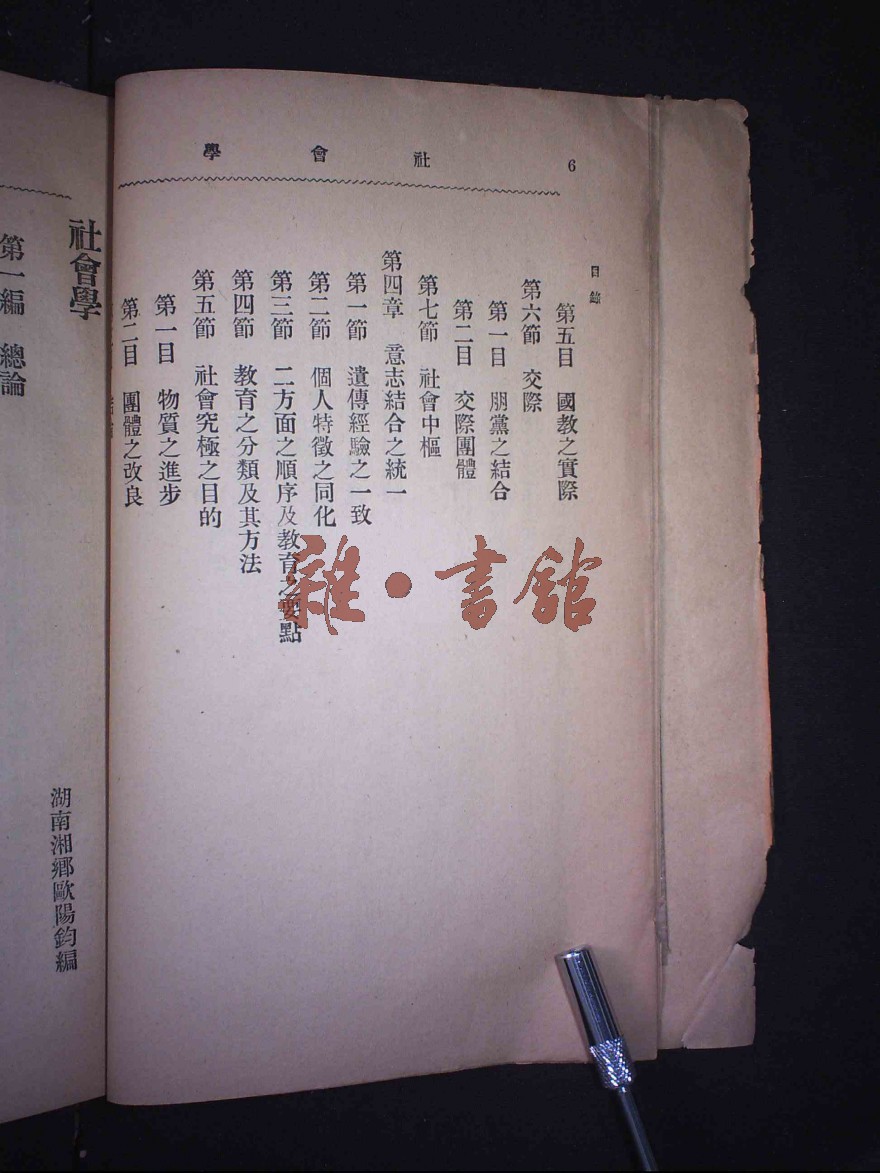 社會學
6
目錄
第五目 國教之實際
第六節 交際
第一目 朋黨之結合
第二目 交際團體
第七節 社會中樞
第四章 意志結合之統一
第一節 遺傳經驗之一致
第二節 個人特徵之同化
第三節 二方面之順序及教育之要點
第四節 教育之分類及其方法
第五節 社會究極之目的
第一目 物質之進步
第二目 團體之改良
社會學
湖南湘鄉歐陽鈞編
第一編 總論
雜·書館